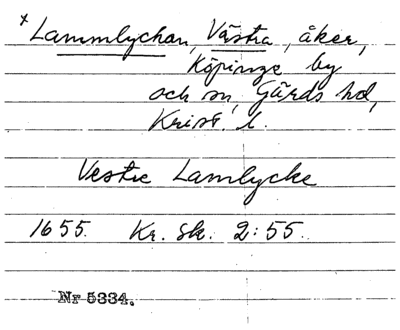 x Lammlyckan, Västra, åker,
Köpinge by
och sn, Gärds hd,
Krist. l.
Vestre Lamlycke
1655. Kr. Sk. 2:55.
Nr 5334.